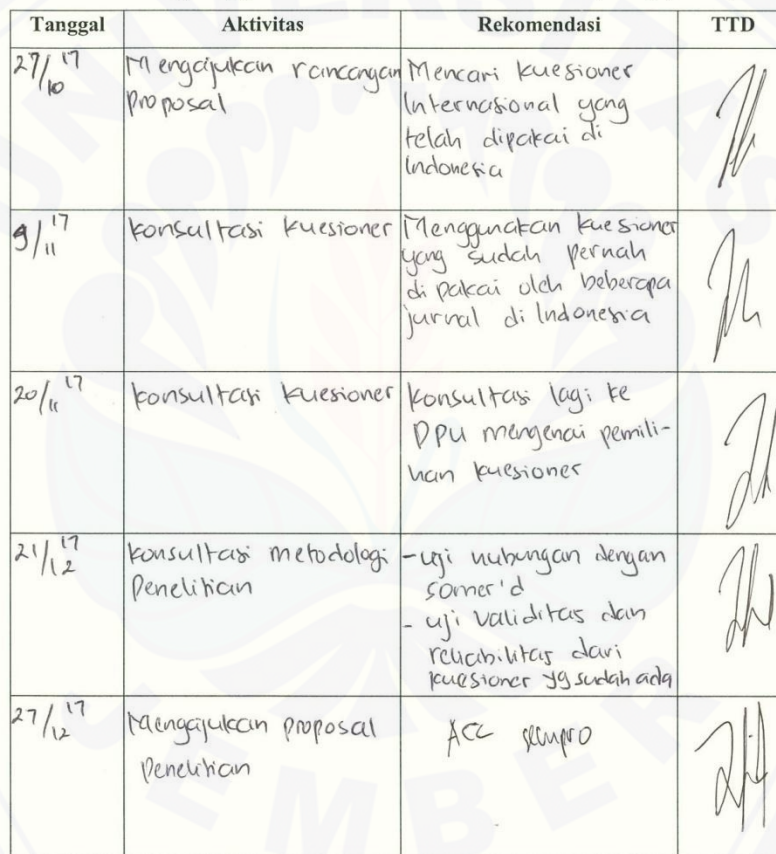 Tanggal Aktivitas Rekomendasi TTD
27/10 17 Mengajukan rancangan Mencari kuesioner
proposal Internasional yang
telah dipakai di
Indonesia
9/11 17 konsultasi kuesioner Menggunakan kuesioner
yang sudah pernah
di pakai oleh beberapa
jurnal di Indonesia
20/11 17 konsultasi kuesioner konsultasi lagi ke
DPU mengenai pemili-
han kuesioner
21/12 17 konsultasi metodologi - uji hubungan dengan
Penelitian somer'd
- uji validitas dan
reliabilitas dari
kuesioner yg sudah ada
27/12 17 Mengajukan proposal ACC sempro
Penelitian
UNIVERSITAS
JEMBER